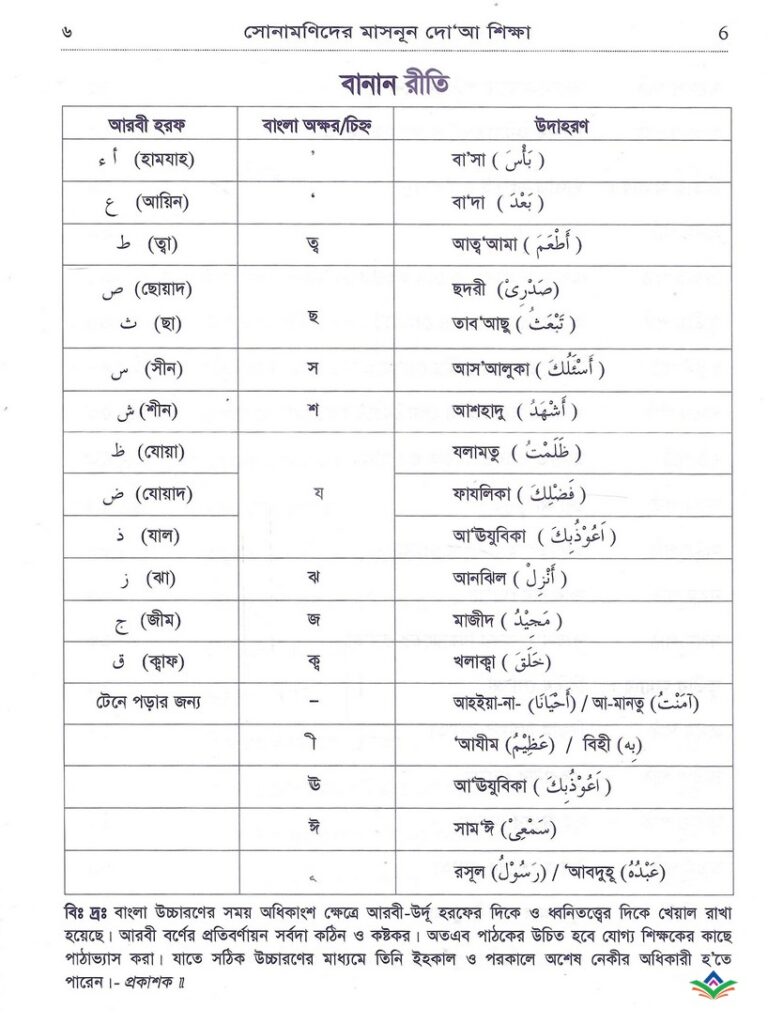 ৬ সোনামণিদের মাসনূন দো‘আ শিক্ষা 6
বানান রীতি
আরবী হরফ বাংলা অক্ষর/চিহ্ন উদাহরণ
أ ء (হামযাহ) ’ বা’সা ( بَأْسَ )
ع (আয়িন) ‘ বা‘দা ( بَعْدَ )
ط (ত্বা) ত্ব আত্ব‘আমা ( أَطْعَمَ )
ص (ছোয়াদ) ছদরী (صَدْرِىْ)
ث (ছা) ছ তাব‘আছু ( تَبْعَثُ )
س (সীন) স আস’আলুকা ( أَسْئَلُكَ )
ش (শীন) শ আশহাদু ( أَشْهَدُ )
ظ (যোয়া) যলামতু ( ظَلَمْتُ )
ض (যোয়াদ) য ফাযলিকা ( فَضْلِكَ )
ذ (যাল) আ‘ঊযুবিকা ( اَعُوْذُبِكَ )
ز (ঝা) ঝ আনঝিল ( أَنْزِلْ )
ج (জীম) জ মাজীদ ( مَجِيْدُ )
ق (ক্বাফ) ক্ব খলাক্বা ( خَلَقَ )
টেনে পড়ার জন্য – আহইয়া-না- (أَحْيَانَا) / আ-মানতু (آمَنْتُ)
ী ‘আযীম (عَظِيْمُ) / বিহী (بِهِ)
ঊ আ‘ঊযুবিকা ( اَعُوْذُبِكَ )
ঈ সাম‘ঈ (سَمْعِىْ)
ূ রসূল (رَسُوْلُ) / ‘আবদুহূ (عَبْدُهُ)
বিঃ দ্রঃ বাংলা উচ্চারণের সময় অধিকাংশ ক্ষেত্রে আরবী-উর্দূ হরফের দিকে ও ধ্বনিতত্ত্বের দিকে খেয়াল রাখা
হয়েছে। আরবী বর্ণের প্রতিবর্ণায়ন সর্বদা কঠিন ও কষ্টকর। অতএব পাঠকের উচিত হবে যোগ্য শিক্ষকের কাছে
পাঠাভ্যাস করা। যাতে সঠিক উচ্চারণের মাধ্যমে তিনি ইহকাল ও পরকালে অশেষ নেকীর অধিকারী হ’তে
পারেন।- প্রকাশক ॥